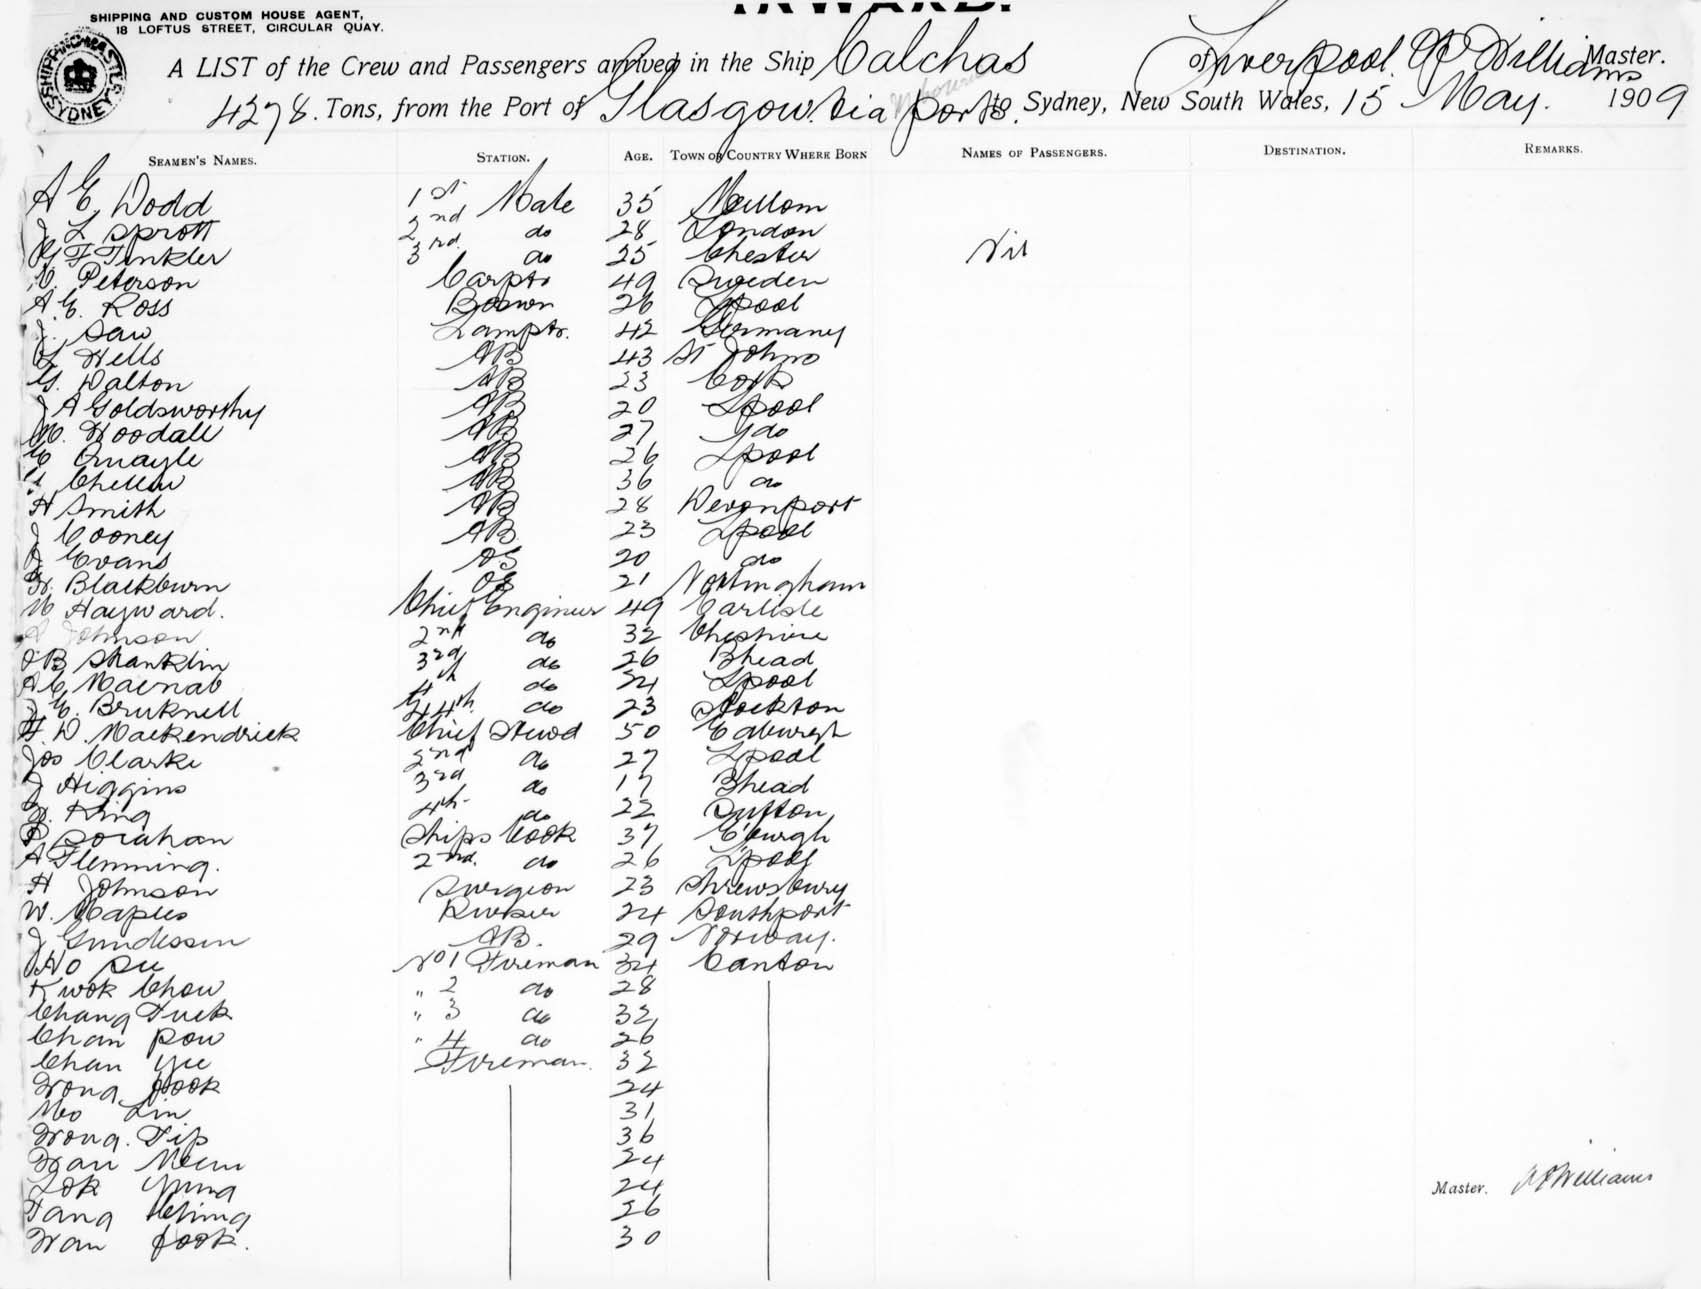 INWARD.
SHIPPING AND CUSTOM HOUSE AGENT,
18 LOFTUS STREET, CIRCULAR QUAY.
SHIPPING MASTERS SYDNEY
A LIST of the Crew and Passengers arrived in the Ship Calchas of Liverpool. Williams Master.
4278. Tons, from the Port of Glasgow. via ports. to Sydney, New South Wales, 15 May. 1909
SEAMEN'S NAMES. STATION. AGE. TOWN OR COUNTRY WHERE BORN NAMES OF PASSENGERS. DESTINATION. REMARKS.
A E Dodd 1st Mate 35 Millom
J L Sprott 2nd do 28 London
G F Tinkler 3rd. do 25 Chester Nil
Peterson Carptr 49 Sweden
A. E. Ross Boswn 26 Lpool
J. Saw Lamptr. 42 Germany
Wells AB 43 St Johns
G. Dalton AB 23 Cork
J A Goldsworthy AB 20 Lpool
W. Woodall AB 27 do
C Quayle AB 26 Lpool
Chellew AB 36 do
H Smith AB 28 Devonport
J Cooney AB 23 Lpool
J Evans OS 20 do
Blackburn OS 21 Nottingham
W Hayward. Chief Engineer 49 Carlisle
Johnson 2nd do 32 Cheshire
J B Shanklin 3rd do 26 Bhead
A C Macnab 4th do 24 Lpool
J C. Brucknell 44th. do 23 Stockton
D. Mackendrick Chief Stewd 50 Edburgh
Jos Clarke 2nd do 27 Lpool
J Higgins 3rd do 17 Bhead
King 4th do 22 Sutton
P Sorahan Ships Cook 37 E'burgh
A Flemming. 2nd. do 26 L'pool
H Johnson Surgeon 23 Shrewsbury
W. Maples Purser 24 Southport
J Gundessen AB. 29 Norway.
Ho Su No 1 Fireman 34 Canton
Kwok Chow " 2 do 28
Chang Tuck " 3 do 32
Chan Pow " 4 do 26
Chan Yee Fireman. 32
Wong Fook 24
Mo Lin 31
Wong. Tip 36
Wan 24
Lok Yung 24
Tang Ching 26
Wan Fook. 30
Master. Williams